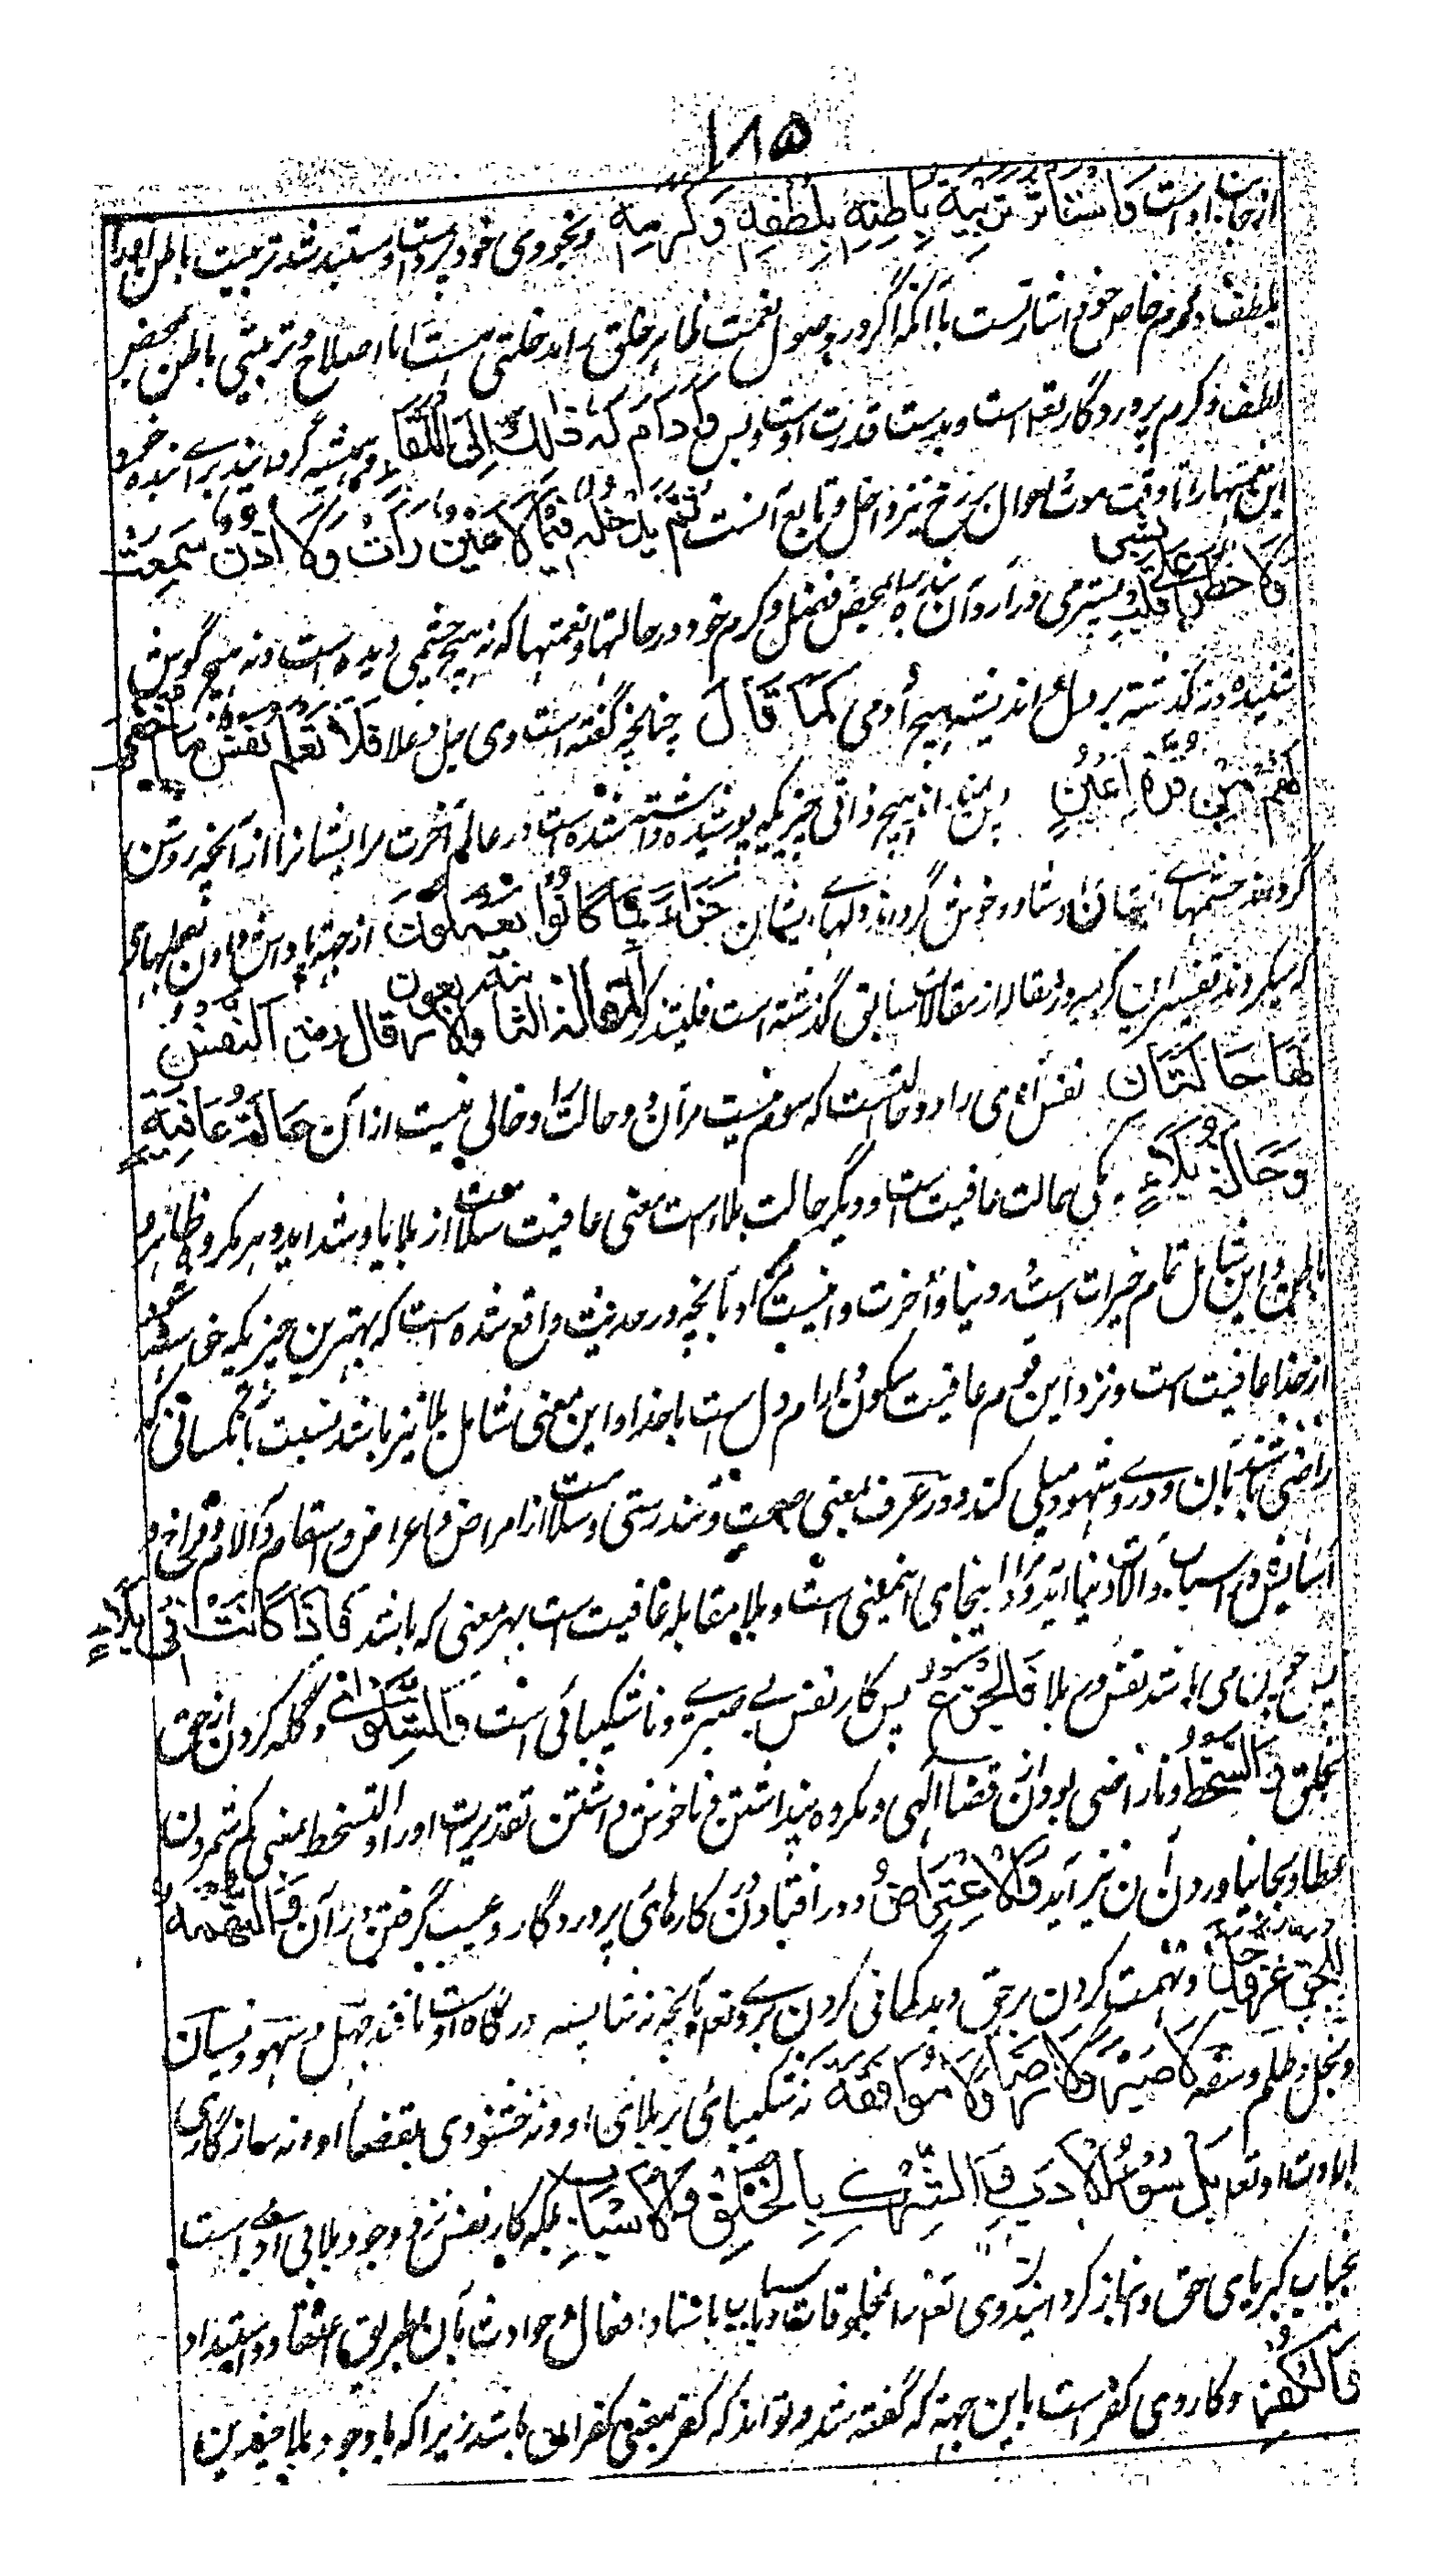 ۱۸۵
از جانب او است وَاسْتَأْثَرَ تَرْبِيَةَ بَاطِنِهِ بِلُطْفِهِ وَكَرَمِهِ وبخودی خود پرداخت و مستبد شد تربیت باطن او را
بلطف و کرم خاص خود اشارتست بآنکه اگر در وصول نعمت ظاهر خلق را مدخلتی هست اما اصلاح و تربیتی باطن محض
لطف و کرم پروردگار تعالی است و بدست قدرت اوست و بس وَأَدَامَ لَهُ ذٰلِكَ إِلَى اللِّقَاءِ و همیشه گرداند برای بنده خود
این نعمتها را تا وقت موت و احوال برزخ نیز داخل و تابع آنست ثُمَّ يُدْخِلُهُ فِيْمَا لَا عَيْنٌ رَأَتْ وَلَا أُذُنٌ سَمِعَتْ
وَلَا خَطَرَ عَلٰى قَلْبِ بَشَرٍ پستر می درآرد آن بنده را بمحض فضل و کرم خود در حالتها و نعمتها که نه هیچ چشمی دیده است و نه هیچ گوش
شنیده و نگذشته بر دل و اندیشه هیچ آدمی كَمَا قَالَ چنانچه گفته است وی جل و علا فَلَا تَعْلَمُ نَفْسٌ مَا أُخْفِيَ
لَهُمْ مِنْ قُرَّةِ أَعْيُنٍ پس نمیداند هیچ ذاتی چیزیکه پوشیده داشته شده است در عالم آخرت مر ایشانرا از آنچه روشن
گرداند چشمهای ایشان و شاد و خوش گرداند دلهای ایشان جَزَاءً بِمَا كَانُوْا يَعْمَلُوْنَ از جهت پاداش دادن بعملهای
که میکردند تفسیر این کریمه در مقاله از مقالات سابق گذشته است فلیتذکر المقالة الثانیة والاربعون قال رضی النَّفْسُ
لَهَا حَالَتَانِ نفس آدمی را دو حالتست که سوم نیست مر آن دو حالت را و خالی نیست ازان حَالَةُ عَافِيَةٍ
وَحَالَةُ بَلَاءٍ یکی حالت عافیت است و دیگر حالت بلا است معنی عافیت سلامت از بلایا و شداید و هر مکروه ظاهر و
باطن و این شامل تمام خیرات است در دنیا و آخرت و اینست مراد بآنچه در حدیث واقع شده است که بهترین چیزیکه خواسته شود
از خدا عافیت است و نزد این قوم عافیت سکون و آرام دل است با خدا و این معنی شامل بلا نیز باشد نسبت بآنکسانی که
راضی باشند بآن و در وی شهود مبلی کند و در عرف بمعنی صحت و تندرستی و سلامت از امراض و اعراض و اسقام و آلام و فراخی و
آسایش و اسباب و آلات دنیا آید و مراد اینجا همین معنی است و بلا مقابله عافیت است بهر معنی که باشد فَإِذَا كَانَتْ فِي بَلَاءٍ
پس چون می باشد نفس در بلا فَالْجَزَعُ پس کار نفس بی صبری و ناشکیبائی است وَالشَّكْوٰى و گله کردن از حق
بخلق وَالسَّخَطُ و ناراضی بودن از قضای الهی و مکروه پنداشتن و ناخوش داشتن تقدیرات او را و التسخط بمعنی کم شمردن
عطا و بجا نیاوردن آن نیز آید وَالْاِعْتِرَاضُ و در افتادن در کارهای پروردگار و عیب گرفتن در آن وَالتُّهْمَةُ
لِلْحَقِّ عَزَّ وَجَلَّ و تهمت کردن بر حق و بدگمانی کردن بر وی تعالی بآنچه نه شایسته درگاه اوست مانند جهل و سهو و نسیان
و بخل و ظلم و سفه لَا صَبْرٌ وَلَا رِضًا وَلَا مُوَافَقَةٌ نه شکیبائی بر بلای او و نه خشنودی بقضای او و نه سازگاری
ارادت او تعالی بَلْ سُوْءُ الْأَدَبِ وَالشِّرْكُ بِالْخَلْقِ وَالْأَسْبَابِ بلکه کار نفس نزد وجود بلا بی ادبی است
بجناب کبریای حق و انباز گردانیدن وی تعالی را بمخلوقات و اسباب باسناد افعال و حوادث بآن بطریق اعتقاد و استبداد
وَالْكُفْرُ و کار وی کفر است باین جهت که گفته شد و تواند که کفر بمعنی کفران باشد زیرا که با وجود بلا چندین